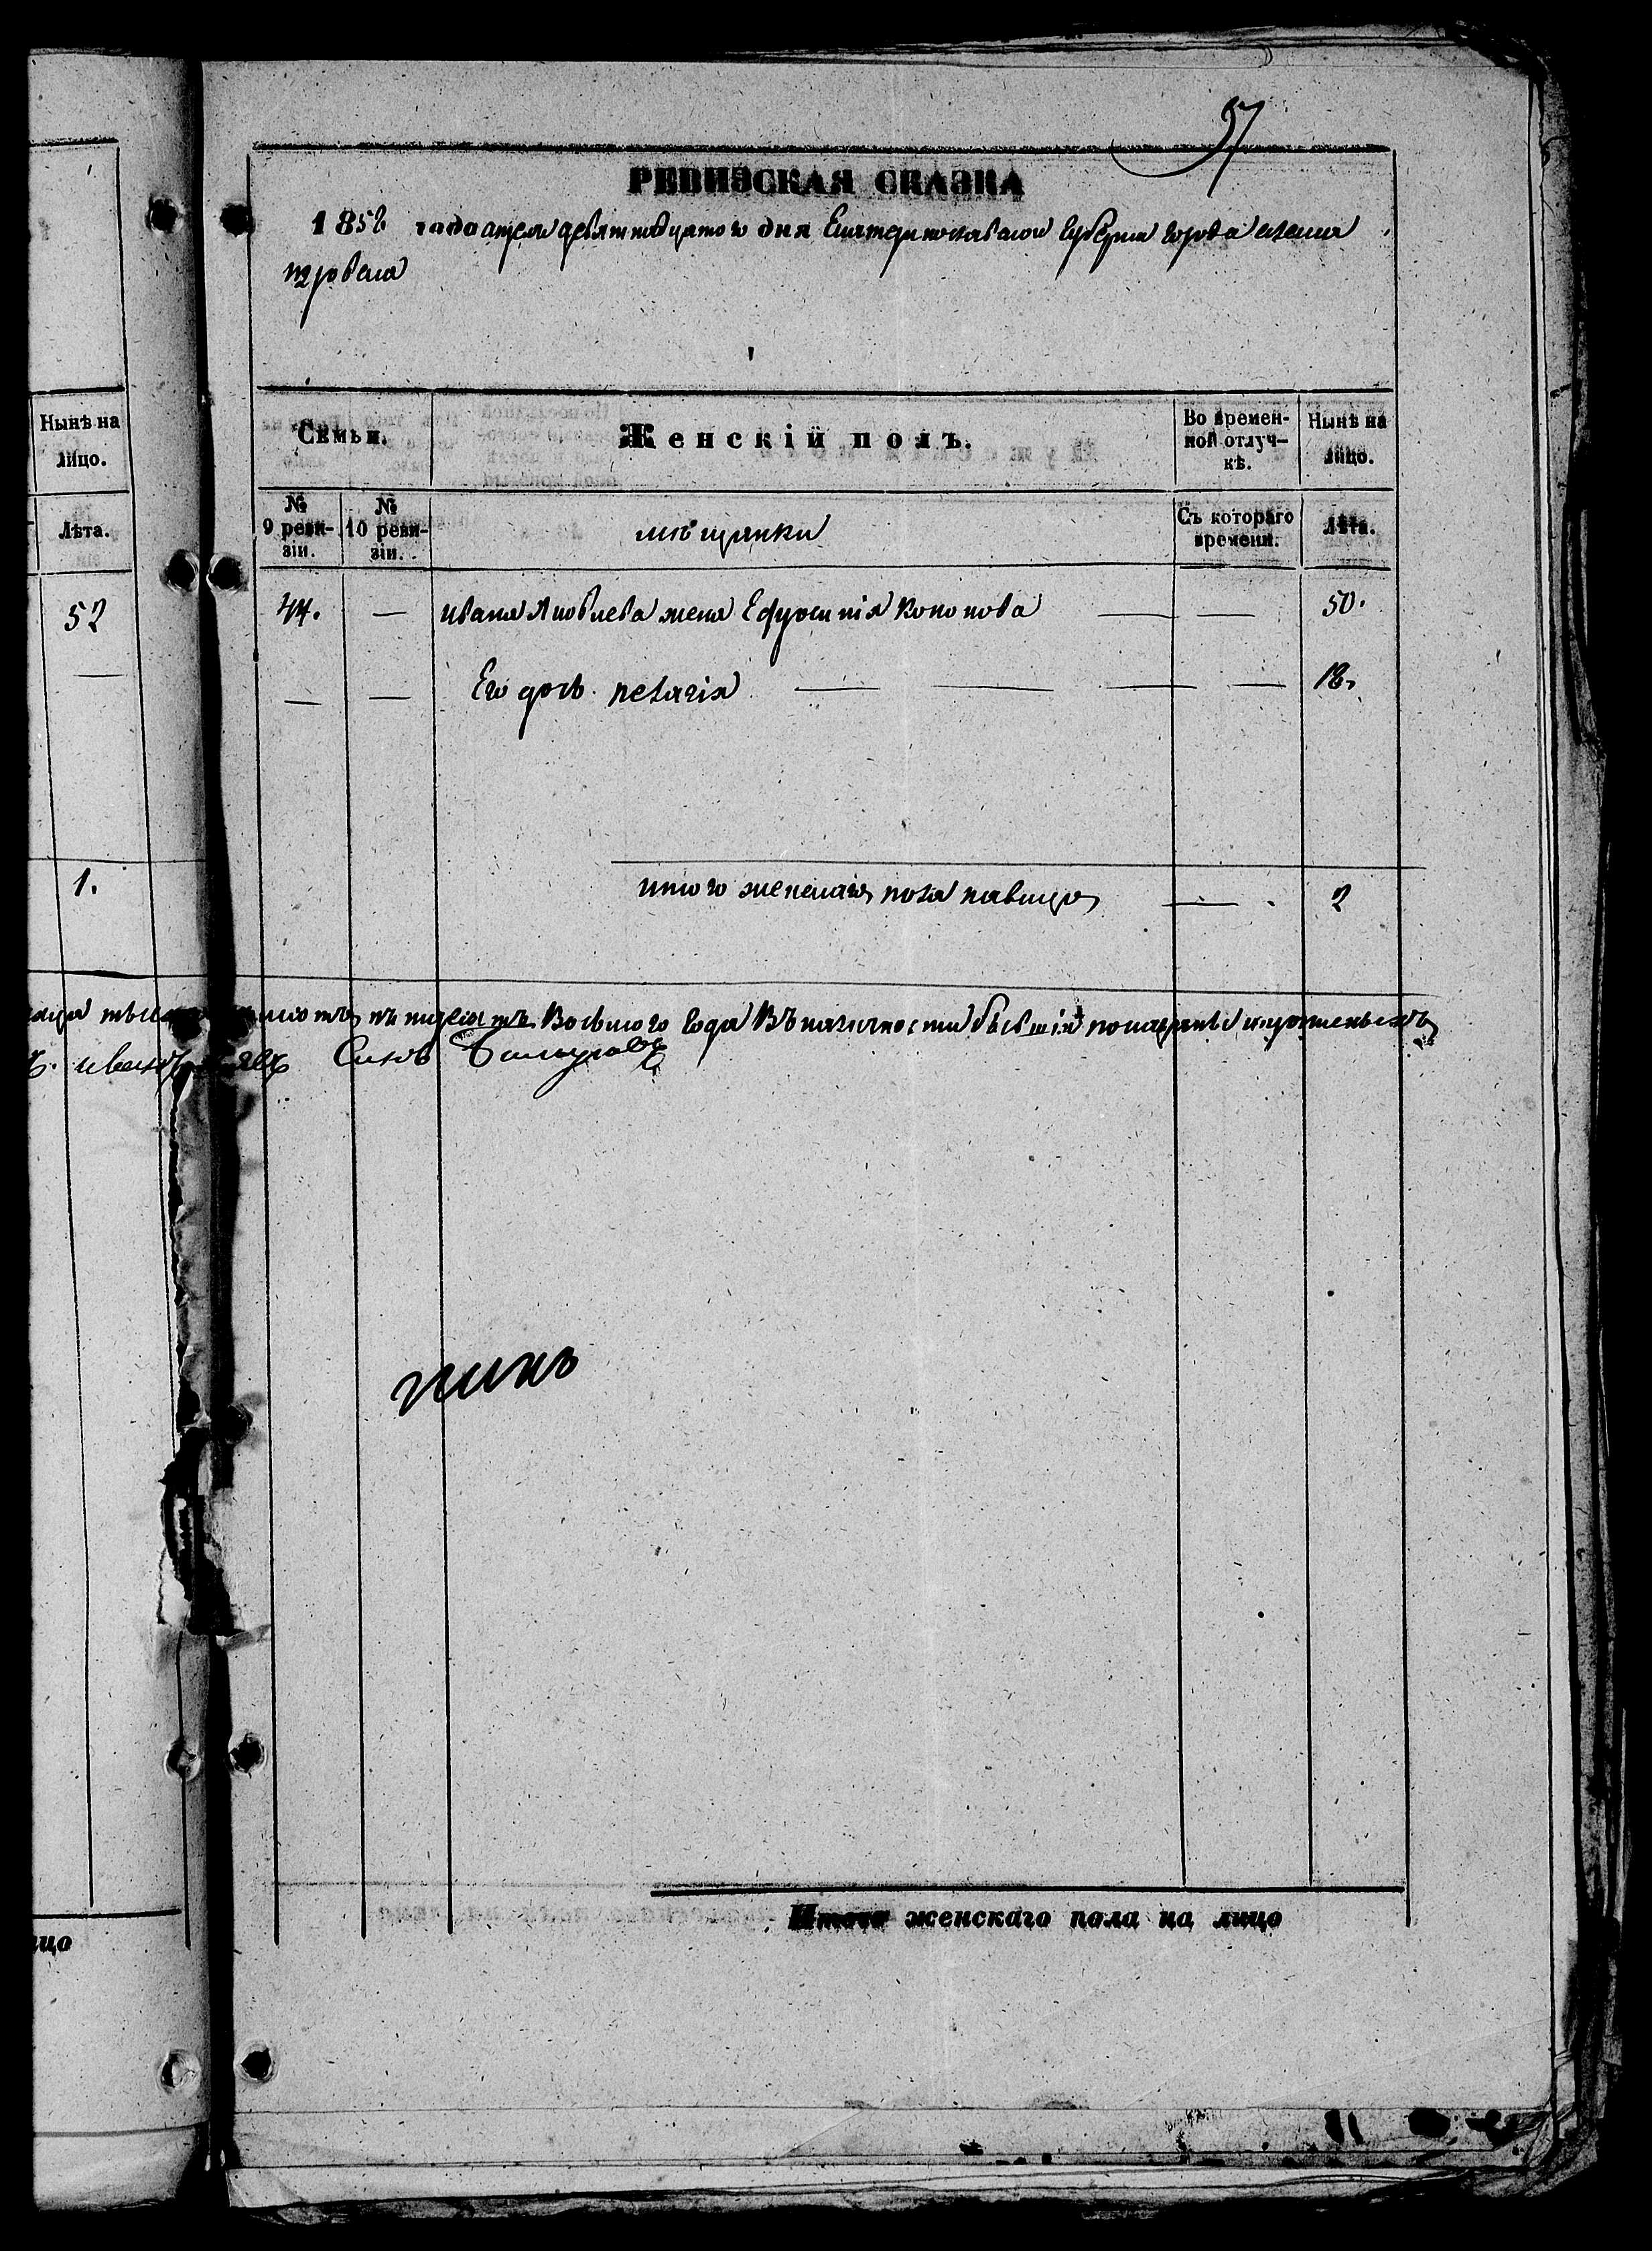 97
РЕВИЗСКАЯ СКАЗКА
1858 года апреля девятнадцатого дня Екатеринославской Губернии города
Нынѣ на лицо.
Семьи.
Женскій полъ.
Во времен-
ной отлуч-
кѣ.
Нынѣ на
лицо.
Лѣта.
№
9 реви-
зіи.
№
10 реви-
зіи.
мѣщанки
Съ котораго
времени.
Лѣта.
52
44. — ивана Яковлева жена Ефросинія Кононова — — 50.
— — Его дочь пелагія — — — — 18.
1.
итого женскаго пола налицо — 2
пятьдесятъ Восьмого года Въ наличности бывшія
ивановъ Сынъ
Итого женскаго пола на лицо
лицо